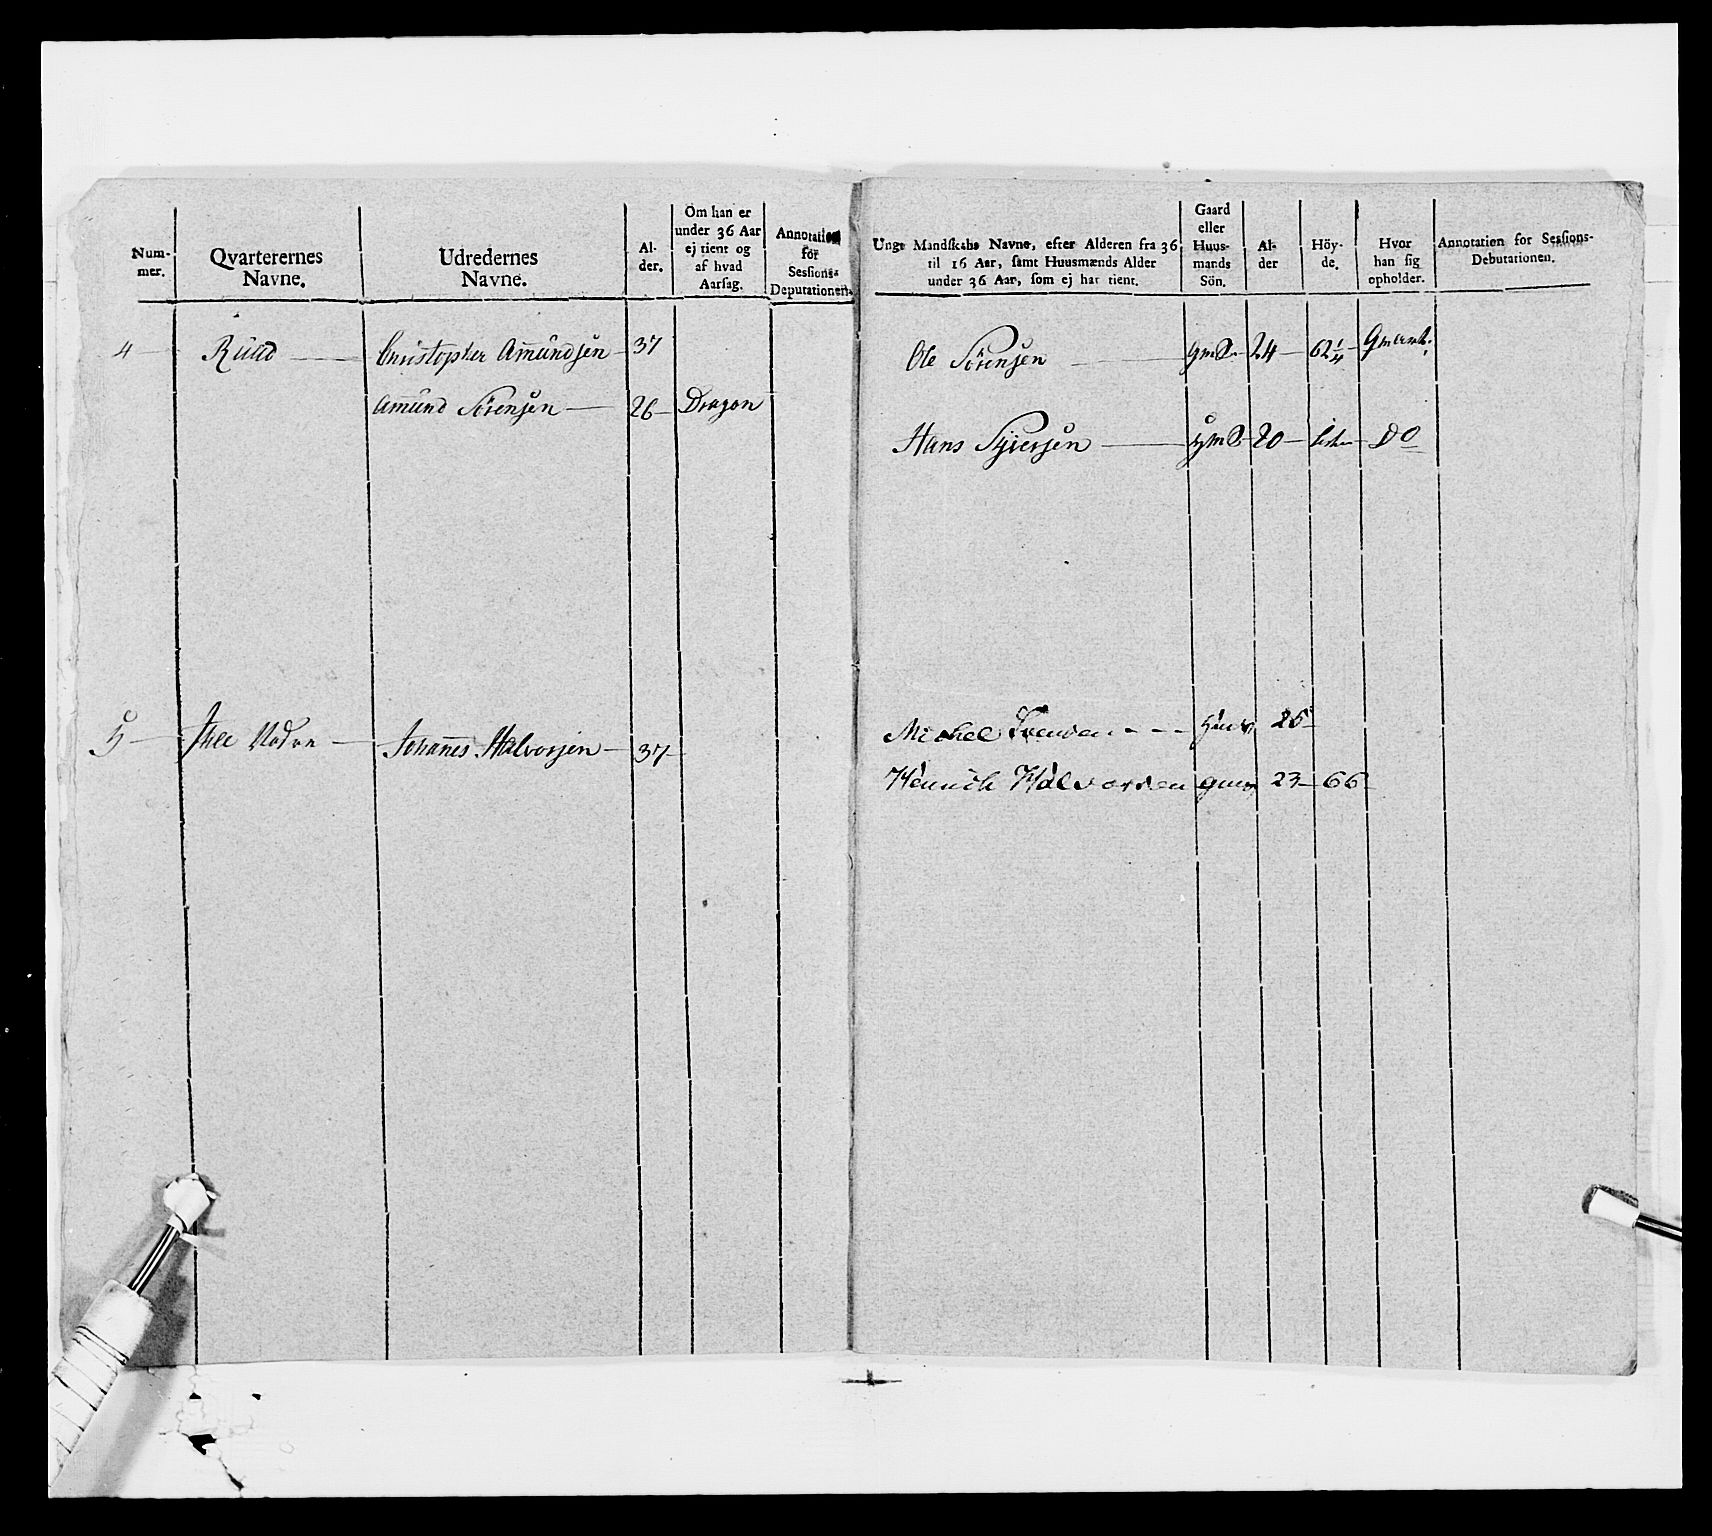 Num-
mer.
Qvarterernes
Navne.
Udredernes
Navne.
Al-
der.
Om han er
under 36 Aar
ej tient og
af hvad
Aarsag.
Annotation
for
Sessions-
Deputationen.
4 Ruud Christopher Amundsen 37
Amund Sörensen 26 Dragon
5 Johannes Halvorsen 37
Unge Mandskabs Navne, efter Alderen fra 36
til 16 Aar, samt Huusmænds Alder
under 36 Aar, som ej har tient.
Gaard
eller
Huus-
mands
Sön.
Al-
der
Höy-
de.
Hvor
han sig
opholder.
Annotation for Sessions-
Debutationen.
Ole Sörensen gmS 24 62 1/4
Hans gmS 20 Do
Michel 26
Henrich Halvorsen 23 66